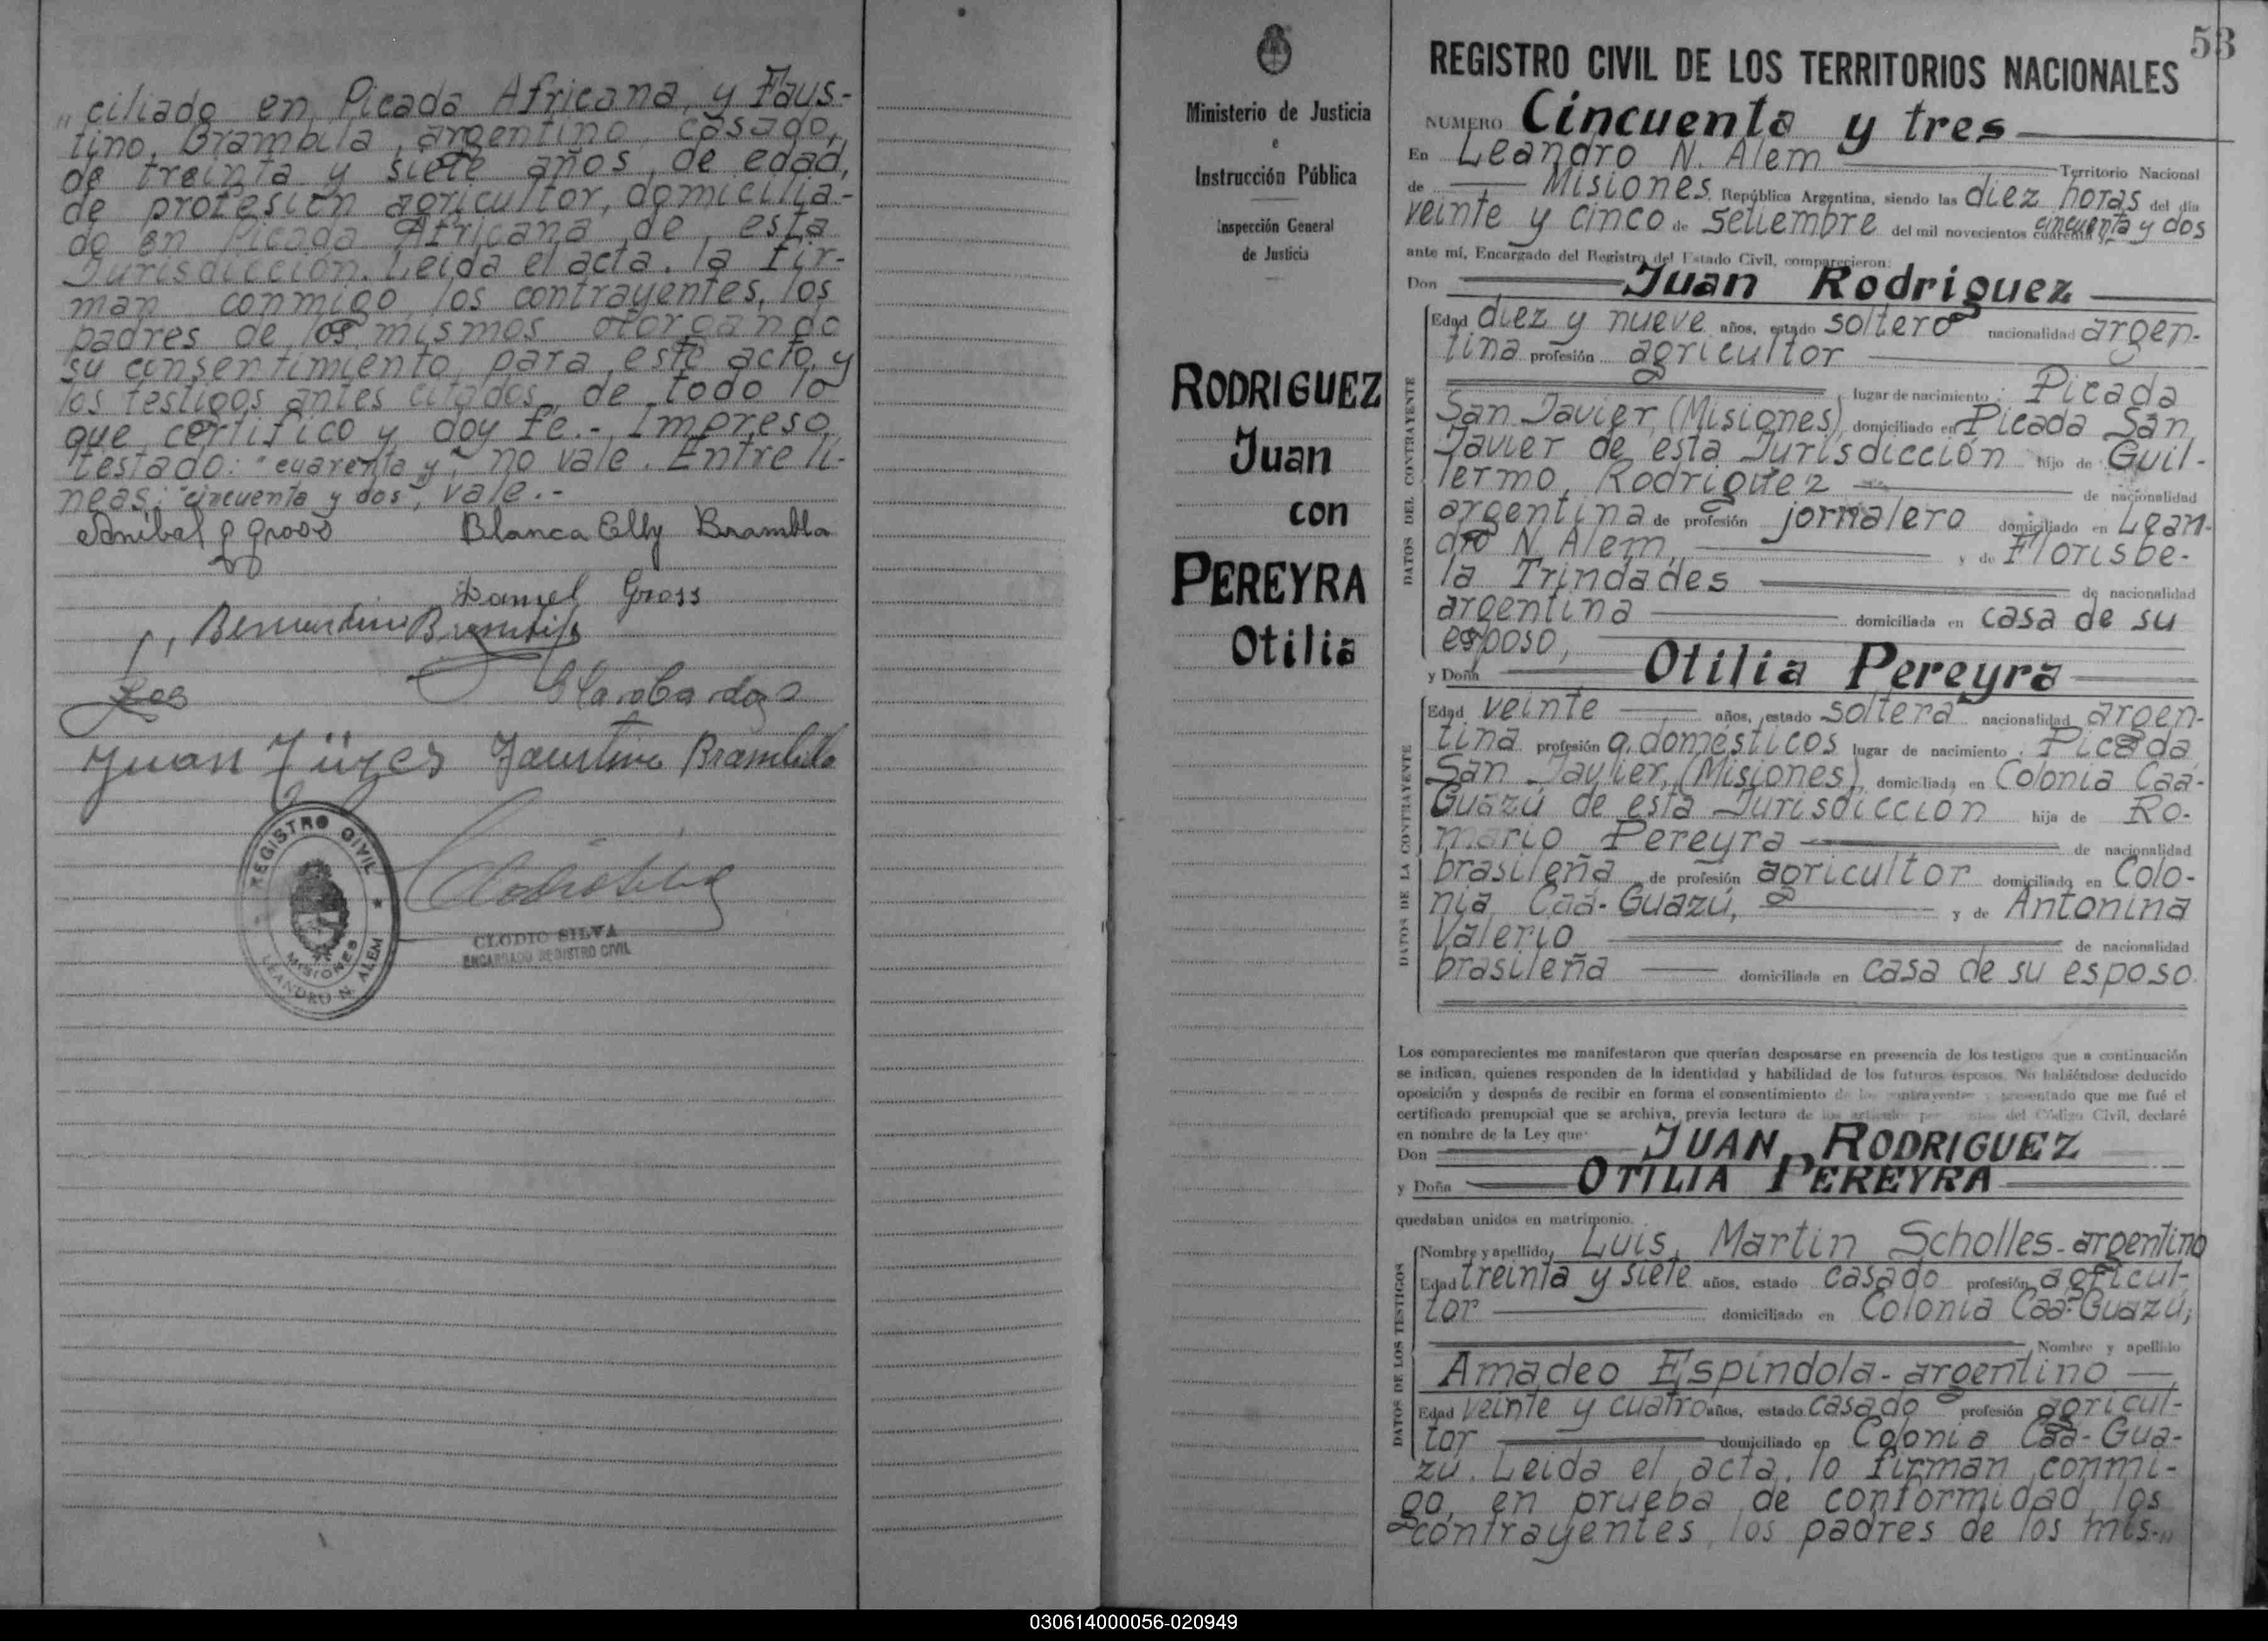 „ciliado en Picada Africana, y Faus-
tino Brambila, argentino, casado,
de treinta y siete años de edad,
de profesión agricultor, domicilia-
do en Picada Africana de esta
Jurisdicción. Leida el acta, la fir-
man conmigo los contrayentes, los
padres de los mismos otorgando
su consentimiento para este acto, y
los testigos antes citados, de todo lo
que certifico y doy fe.- Impreso,
testado: "cuarenta y", no vale. Entre li-
neas: "cincuenta y dos", vale.-
Anibal J Gross Blanca Elly Brambla
Daniel Gross
Bernardino Brambila
Juan Faustino Brambila
REGISTRO CIVIL
MISIONES
LEANDRO N. ALEM
CLODIO SILVA
ENCARGADO REGISTRO CIVIL
Ministerio de Justicia
e
Instrucción Pública
Inspección General
de Justicia
RODRIGUEZ
Juan
con
PEREYRA
Otilia
53
REGISTRO CIVIL DE LOS TERRITORIOS NACIONALES
NUMERO Cincuenta y tres
En Leandro N. Alem Territorio Nacional
de Misiones, República Argentina, siendo las diez horas del día
veinte y cinco de Setiembre del mil novecientos cuarenta y cincuenta y dos
ante mí, Encargado del Registro del Estado Civil, comparecieron:
Don Juan Rodriguez
DATOS DEL CONTRAYENTE
Edad diez y nueve años, estado soltero nacionalidad argen-
tina profesión agricultor
lugar de nacimiento: Picada
San Javier, (Misiones), domiciliado en Picada San
Javier de esta Jurisdicción hijo de Guil-
lermo Rodriguez de nacionalidad
argentina de profesión jornalero domiciliado en Lean-
dro N. Alem, y de Florisbe-
la Trindades de nacionalidad
argentina domiciliada en casa de su
esposo,
y Doña Otilia Pereyra
DATOS DE LA CONTRAYENTE
Edad veinte años, estado soltera nacionalidad argen-
tina profesión q. domésticos lugar de nacimiento: Picada
San Javier, (Misiones), domiciliada en Colonia Caá-
Guazú de esta Jurisdicción hija de Ro-
mario Pereyra de nacionalidad
brasileña de profesión agricultor domiciliado en Colo-
nia Caá-Guazú, y de Antonina
Valerio de nacionalidad
brasileña domiciliada en casa de su esposo.
Los comparecientes me manifestaron que querían desposarse en presencia de los testigos que a continuación
se indican, quienes responden de la identidad y habilidad de los futuros esposos. No habiéndose deducido
oposición y después de recibir en forma el consentimiento de los contrayentes y presentado que me fué el
certificado prenupcial que se archiva, previa lectura de los artículos del Código Civil, declaré
en nombre de la Ley que:
Don JUAN RODRIGUEZ
y Doña OTILIA PEREYRA
quedaban unidos en matrimonio.
DATOS DE LOS TESTIGOS
Nombre y apellido, Luis Martin Scholles-argentino
Edad treinta y siete años, estado casado profesión agricul-
tor domiciliado en Colonia Caá-Guazú;
Nombre y apellido
Amadeo Espíndola-argentino
Edad veinte y cuatro años, estado casado profesión agricul-
tor domiciliado en Colonia Caá-Gua-
zú. Leida el acta, la firman conmi-
go, en prueba de conformidad los
contrayentes, los padres de los mis-„
030614000056-020949